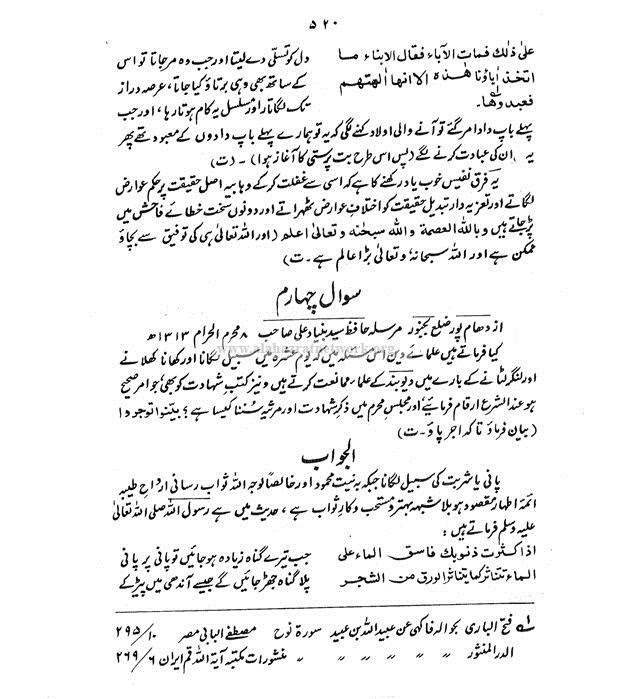 ۵۲۰
علی ذٰلك فمات الآباء فقال الابناء ما
اتخذ اٰباؤنا ھٰذہ الا انھا اٰلھتھم
فعبدوھا۔
دل کو تسلی دے لیتا اور جب وہ مر جاتا تو اس
کے ساتھ بھی وہی برتاؤ کیا جاتا، عرصہ دراز
تک لگاتار اور مسلسل یہ کام ہوتا رہا، اور جب
پہلے باپ دادا مر گئے تو آنے والی اولاد کہنے لگی کہ یہ تو ہمارے پہلے باپ دادوں کے معبود تھے پھر
یہ ان کی عبادت کرنے لگے (پس اس طرح بت پرستی کا آغاز ہوا)۔ (ت)
یہ فرق نفیس خوب یاد رکھنے کا ہے کہ اسی سے غفلت کر کے وہابیہ اصل حقیقت پر حکم عوارض
لگاتے اور تعزیہ دار تبدیل حقیقت کو اختلاف عوارض ٹھہراتے اور دونوں سخت خطائے فاحش میں
پڑجاتے ہیں وباللہ العصمۃ واللہ سبحٰنہ وتعالیٰ اعلم (اور اللہ تعالیٰ ہی کی توفیق سے بچاؤ
ممکن ہے اور اللہ سبحانہ وتعالیٰ بڑا عالم ہے۔ ت)
سوال چہارم
از دھام پور ضلع بجنور مرسلہ حافظ سید بنیاد علی صاحب ۸ محرم الحرام ۱۳۱۳ھ
کیا فرماتے ہیں علمائے دین اس مسئلہ میں کہ یوم عشرہ میں سبیل لگانا اور کھانا کھلانے
اور لنگر لٹانے کے بارے میں دیوبند کے علماء ممانعت کرتے ہیں و نیز کتب شہادت کو بھی، جو امر صحیح
ہو عند الشرع ارقام فرمایئے اور مجلس محرم میں ذکر شہادت اور مرثیہ سُننا کیسا ہے؟ بیّنوا توجروا
(بیان فرماؤ تاکہ اجر پاؤ۔ ت)
الجواب
پانی یا شربت کی سبیل لگانا جبکہ بہ نیت محمود اور خالصاً لوجہ اللہ ثواب رسانی ارواح طیبہ
ائمۂ اطہار مقصود ہو بلا شبہہ بہتر و مستحب و کار ثواب ہے، حدیث میں ہے رسول اللہ صلی اللہ تعالیٰ
علیہ وسلم فرماتے ہیں:
اذا کثرت ذنوبك فاسق الماء علی
الماء تتناثر کما یتناثر الورق من الشجر
جب تیرے گناہ زیادہ ہو جائیں تو پانی پر پانی
پلا گناہ جھڑ جائیں گے جیسے آندھی میں پیڑ کے
؎۱ فتح الباری بحوالہ فاکہی عن عبید اللہ بن عبید سورۃ نوح مصطفے البابی مصر ۱۰/ ۲۹۵
الدر المنثور 〃 〃 〃 〃 〃 〃 منشورات مکتبہ آیۃ اللہ قم ایران ۶/ ۲۶۹